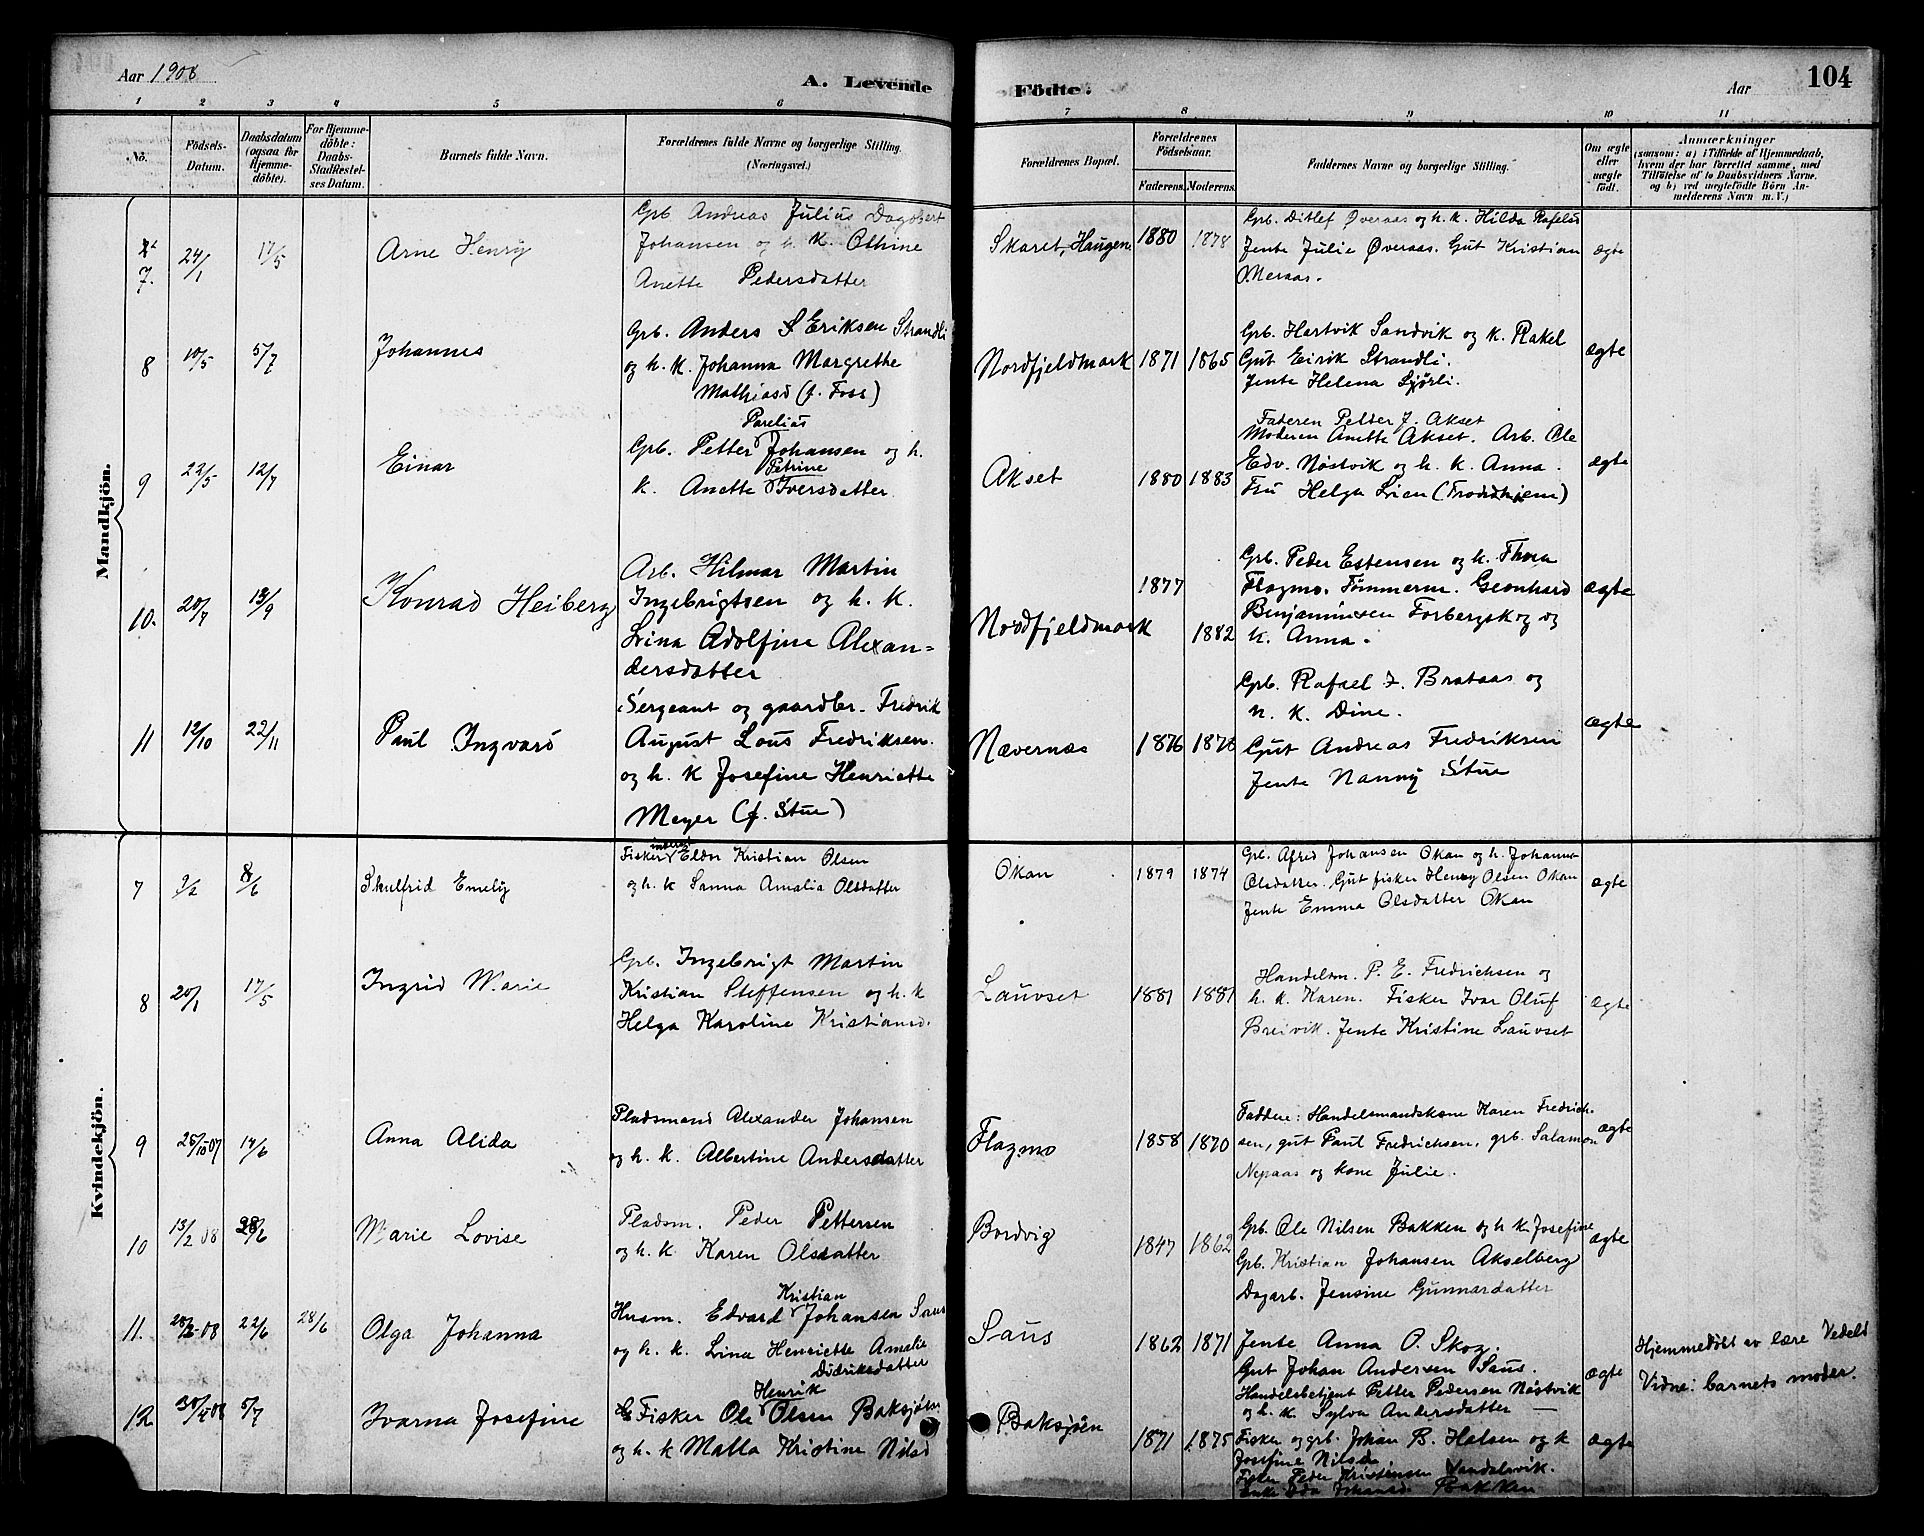 Aar 1908
A. Levende
Födte.
Aar
104
1 2 3 4 5 6 7 8 9 10 11
No.
Födsels-
Datum.
Daabsdatum
(ogsaa for
Hjemme-
döbte).
For Hjemme-
döbte:
Daabs-
Stadfæstel-
ses Datum.
Barnets fulde Navn.
Forældrenes fulde Navne og borgerlige Stilling.
(Næringsvei.)
Forældrenes Bopæl.
Forældrenes
Födselsaar.
Faderens. Moderens.
Faddernes Navne og borgerlige Stilling.
Om ægte
eller
uægte
födt.
Anmærkninger
(saasom: a) i Tilfælde af Hjemmedaab,
hvem der har forrettet samme, med
Tilföielse af to Daabsvidners Navne,
og b) ved uægtefödte Börn An-
melderens Navn m.V.)
Mandkjön.
7. 24/1 17/5 Arne Henry
Grb. Andreas Julius Dagobert
Johansen og h. K. Othine
Anette Pedersdatter
Skaret, Haugene 1880 1878
Grb. Ditlef Øveraas og h. k. Hilda Rafelsd
Jente Julie Øveraas. Gut Kristian
Meraas.
ægte
8 10/5 5/7 Johannes
Grb. Anders Eriksen Strandli
og h. K. Johanna Margrethe
Mathiasd (f. Foss)
Nordfjeldmark 1871 1865
Grb. Hartvik Sandvik og K. Rakel
Gut Eirik Strandli.
Jente Helena Sjørli.
ægte
9 22/5 12/7 Einar
Parelius
Grb. Petter Johansen og h.
Petrine
K. Anette Iversdatter.
Akset 1880 1883
Faderen Petter J. Akset
Moderen Anette Akset. Arb. Ole
Edv. Nøstvik og h. K. Anna.
Fru Helga Lien (Trondhjem)
ægte
10. 20/7 13/9 Konrad Heiberg
Arb. Hilmar Martin
Ingebrigtsen og h. K.
Lina Adolfine Alexan=
dersdatter
Nordfjeldmark 1877 1882
Grb. Peder Estensen og h. Thora
Flagmo. Tømmerm. Geonhard
Benjaminsen Forbergskog og
K. Anna.
ægte
11 12/10 22/11 Paul Ingvard
Sergeant og gaardbr. Fredrik
August Lous Fredriksen.
og h. K Josefine Henriette
Meyer (f. Stue)
Nævernes 1876 1876
Grb. Rafael J. Brataas og
h. K. Dine.
Gut Andreas Fredriksen
Jente Nanny Stue
ægte
Kvindekjön.
7 9/2 8/6 Skulfrid Emely
Fisker Elder Kristian Olsen
og h. k Sanna Amalia Olsdatter
Okan 1879 1874
Grb. Afred Johansen Okan og h. Johanna
Olsdatter. Gut fisker Henry Olsen Okan
Jente Emma Olsdatter Okan
ægte
8 20/1 17/5 Ingrid Marie
Grb. Ingebrigt Martin
Kristian Steffensen og h. k
Helga Karoline Kristiansd.
Lauvset 1881 1881
Handelsm. P. E. Fredrichsen og
h. k. Karen. Fisker Ivar Oluf
Breivik. Jente Kristine Lauvset
ægte
9 25/10 07 14/6 Anna Alida
Pladsmand Alexander Johansen
og h. K. Albertine Andersdatter
Flagmo 1858 1870
Faddere: Handelsmandskone Karen Fredrich-
sen, gut Paul Fredrichsen, grb. Salamon
Nepaas og kone Julie.
ægte
10 13/2 08 28/6 Marie Lovise
Pladsm. Peder Pettersen
og h. K. Karen Olsdatter
Bordvig 1847 1862
Grb. Ole Nilsen Bakken og h k Josefine
Grb. Kristian Johansen Akselberg
Dagarb. Jensine Gunnarsdatter
ægte
11. 28/2 08 22/6 28/6 Olga Johanna
Kristian
Husm. Edvard Johansen Saus
og h. k. Lina Henriette Amalie
Didriksdatter
Saus 1862 1871
Jente Anna O. Skog.
Gut Johan Andersen Saus.
Handelsbetjent Petter Pedersen Nøstvik
og h. k Sylva Andersdatter —
ægte
Hjemmedøbt av lære Vedelt
Vidne: barnets moder.
12 30/4 08 5/7 Ivarna Josefine
Henrik
Fisker Ole Olsen Baksjøen
og h. k Malla Kristine Nilsd
Baksjøen 1871 1875
Fisker og grb. Johan B. Halsen og k
Josefine Nilsd
Fisker Peder Kristensen Vandalsvik.
Enke Ida Johansd. Bakken
ægte